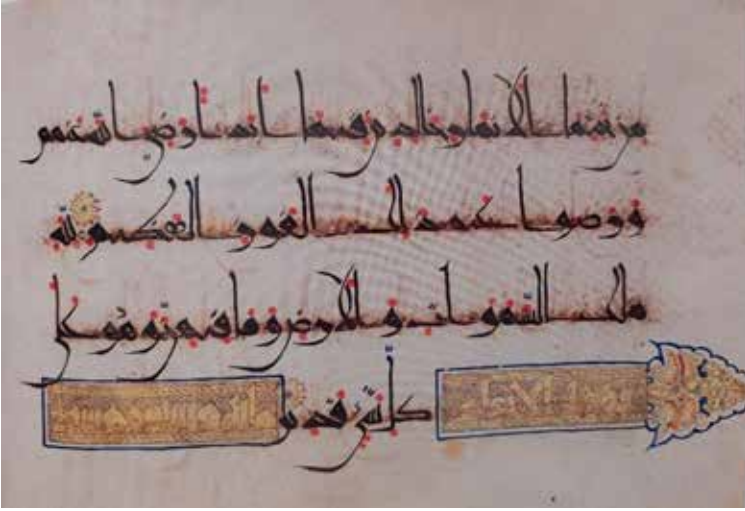 من تحتها الانهار خالدين فيها ابدا رضي الله عنهم
ورضوا عنه ذلك الفوز العظيم لله
ملك السموات والارض وما فيهن وهو على
سورة الانعام كل شي قدير